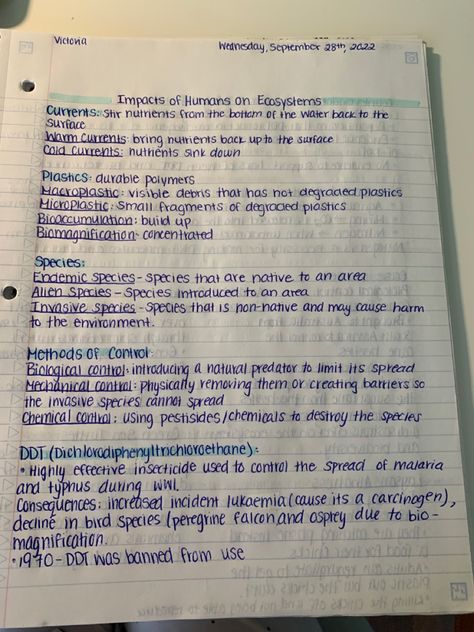 Victoria
Wednesday, September 28th, 2022
Impacts of Humans on Ecosystems
Currents: stir nutrients from the bottom of the water back to the
surface
Warm currents: bring nutrients back up to the surface
Cold currents: nutrients sink down
Plastics: durable polymers
Macroplastic: visible debris that has not degraded plastics
Microplastic: small fragments of degraded plastics
Bioaccumulation: build up
Biomagnification: concentrated
Species:
Endemic species - species that are native to an area
Alien species - species introduced to an area
Invasive species - species that is non-native and may cause harm
to the environment.
Methods of Control:
Biological control: introducing a natural predator to limit its spread
Mechanical control: physically removing them or creating barriers so
the invasive species cannot spread
Chemical control: using pestisides/chemicals to destroy the species
DDT (Dichlorodiphenyltrichloroethane):
• Highly effective insecticide used to control the spread of malaria
and typhus during
Consequences: increased incident lukaemia (cause its a carcinogen),
decline in bird species (peregrine falcon and osprey due to bio-
magnification.
• 1970 - DDT was banned from use